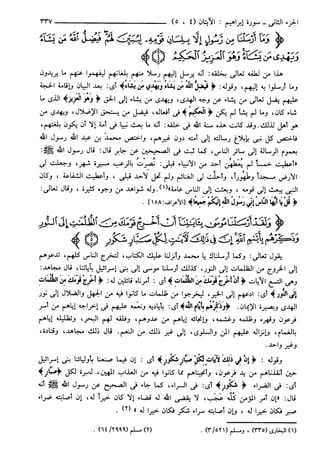 الجزء الثاني - سورة إبراهيم : الآيتان (٤ ، ٥) ٣٣٧
﴿وَمَا أَرْسَلْنَا مِن رَّسُولٍ إِلَّا بِلِسَانِ قَوْمِهِ لِيُبَيِّنَ لَهُمْ فَيُضِلُّ اللَّهُ مَن يَشَاءُ
وَيَهْدِي مَن يَشَاءُ وَهُوَ الْعَزِيزُ الْحَكِيمُ ﴾
هذا من لطفه تعالى بخلقه: أنه يرسل إليهم رسلا منهم بلغاتهم ليفهموا عنهم ما يريدون
وما أرسلوا به إليهم، وقوله: ﴿ فَيُضِلُّ اللَّهُ مَن يَشَاءُ وَيَهْدِي مَن يَشَاءُ﴾ أي: بعد البيان وإقامة الحجة
عليهم يضل تعالى من يشاء عن وجه الهدى، ويهدي من يشاء إلى الحق ﴿وَهُوَ الْعَزِيزُ﴾ الذي ما
شاء كان، وما لم يشأ لم يكن ﴿الْحَكِيمُ﴾ في أفعاله، فيضل من يستحق الإضلال، ويهدي من
هو أهل لذلك. وقد كانت هذه سنة الله في خلقه: أنه ما بعث نبيا في أمة إلا أن يكون بلغتهم،
فاختص كل نبي بإبلاغ رسالته إلى أمته دون غيرهم، واختص محمدٌ بن عبد الله رسول الله
بعموم الرسالة إلى سائر الناس، كما ثبت في الصحيحين عن جابر قال: قال رسول الله ﷺ:
«أعطيت خمساً لم يُعطَهُن أحد من الأنبياء قبلي: نُصرتُ بالرعب مسيرة شهر، وجعلت لي
الأرض مسجداً وطهوراً، وأحلت لي الغنائم ولم تحل لأحد قبلي، وأعطيت الشفاعة، وكان
النبي يبعث إلى قومه، وبعثت إلى الناس عامة»(١). وله شواهد من وجوه كثيرة، وقال تعالى:
﴿ قُلْ يَا أَيُّهَا النَّاسُ إِنِّي رَسُولُ اللَّهِ إِلَيْكُمْ جَمِيعًا﴾ [الأعراف:١٥٨].
﴿وَلَقَدْ أَرْسَلْنَا مُوسَى بِآيَاتِنَا أَنْ أَخْرِجْ قَوْمَكَ مِنَ الظُّلُمَاتِ إِلَى النُّورِ
وَذَكِّرْهُم بِأَيَّامِ اللَّهِ إِنَّ فِي ذَلِكَ لَآيَاتٍ لِّكُلِّ صَبَّارٍ شَكُورٍ ﴾
يقول تعالى: وكما أرسلناك يا محمد وأنزلنا عليك الكتاب، لتخرج الناس كلهم، تدعوهم
إلى الخروج من الظلمات إلى النور، كذلك أرسلنا موسى إلى بني إسرائيل بآياتنا، قال مجاهد:
وهي التسع الآيات ﴿أَنْ أَخْرِجْ قَوْمَكَ مِنَ الظُّلُمَاتِ﴾ أي : أمرناه قائلين له: ﴿أَخْرِجْ قَوْمَكَ مِنَ الظُّلُمَاتِ
إِلَى النُّورِ﴾ أي: ادعهم إلى الخير، ليخرجوا من ظلمات ما كانوا فيه من الجهل والضلال إلى نور
الهدى وبصيرة الإيمان. ﴿وَذَكِّرْهُم بِأَيَّامِ اللَّهِ﴾ أي: بأياديه ونعمه عليهم في إخراجه إياهم من أسر
فرعون وقهره وظلمه وغشمه، وإنجائه إياهم من عدوهم، وفلقه لهم البحر، وتظليله إياهم
بالغمام، وإنزاله عليهم المن والسلوى، إلى غير ذلك من النعم. قال ذلك مجاهد، وقتادة،
وغير واحد.
وقوله : ﴿ إِنَّ فِي ذَلِكَ لَآيَاتٍ لِّكُلِّ صَبَّارٍ شَكُورٍ ﴾ أي : إن فيما صنعنا بأوليائنا بني إسرائيل
حين أنقذناهم من يد فرعون، وأنجيناهم مما كانوا فيه من العذاب المهين، لعبرة لكل ﴿صَبَّارٍ﴾
أي: في الضراء ﴿ شَكُورٍ ﴾ أي: في السراء، كما جاء في الصحيح عن رسول الله ﷺ أنه
قال: «إن أمر المؤمن كُلَّه عَجَب، لا يقضي الله له قضاء إلا كان خيراً له، إن أصابته ضراء
صبر فكان خيرا له ، وإن أصابته سراء شكر فكان خيرا له » (٢) .
(١) البخاري (٣٣٥) ، ومسلم (٣/٥٢١). (٢) مسلم (٦٤/٢٩٩٩) .